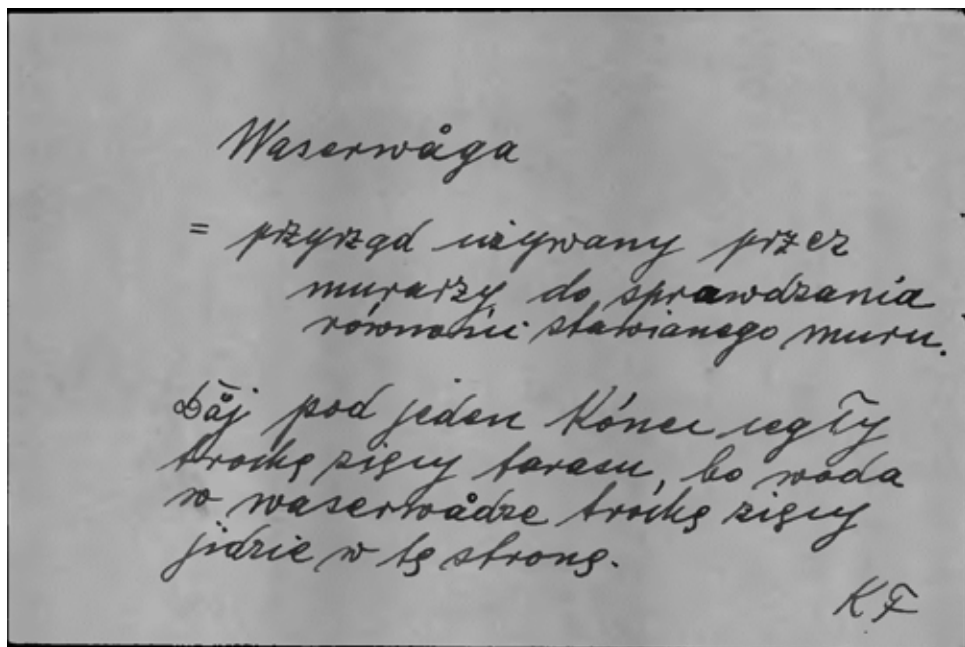 Waserwåga
= przyrząd używany przez
murarzy do sprawdzania
równości stawianego muru.
Dåj pod jeden kónec cegły
trochę zięcy tarasu, bo woda
w waserwådze trochę zięcy
jidzie w tę stronę.
KF